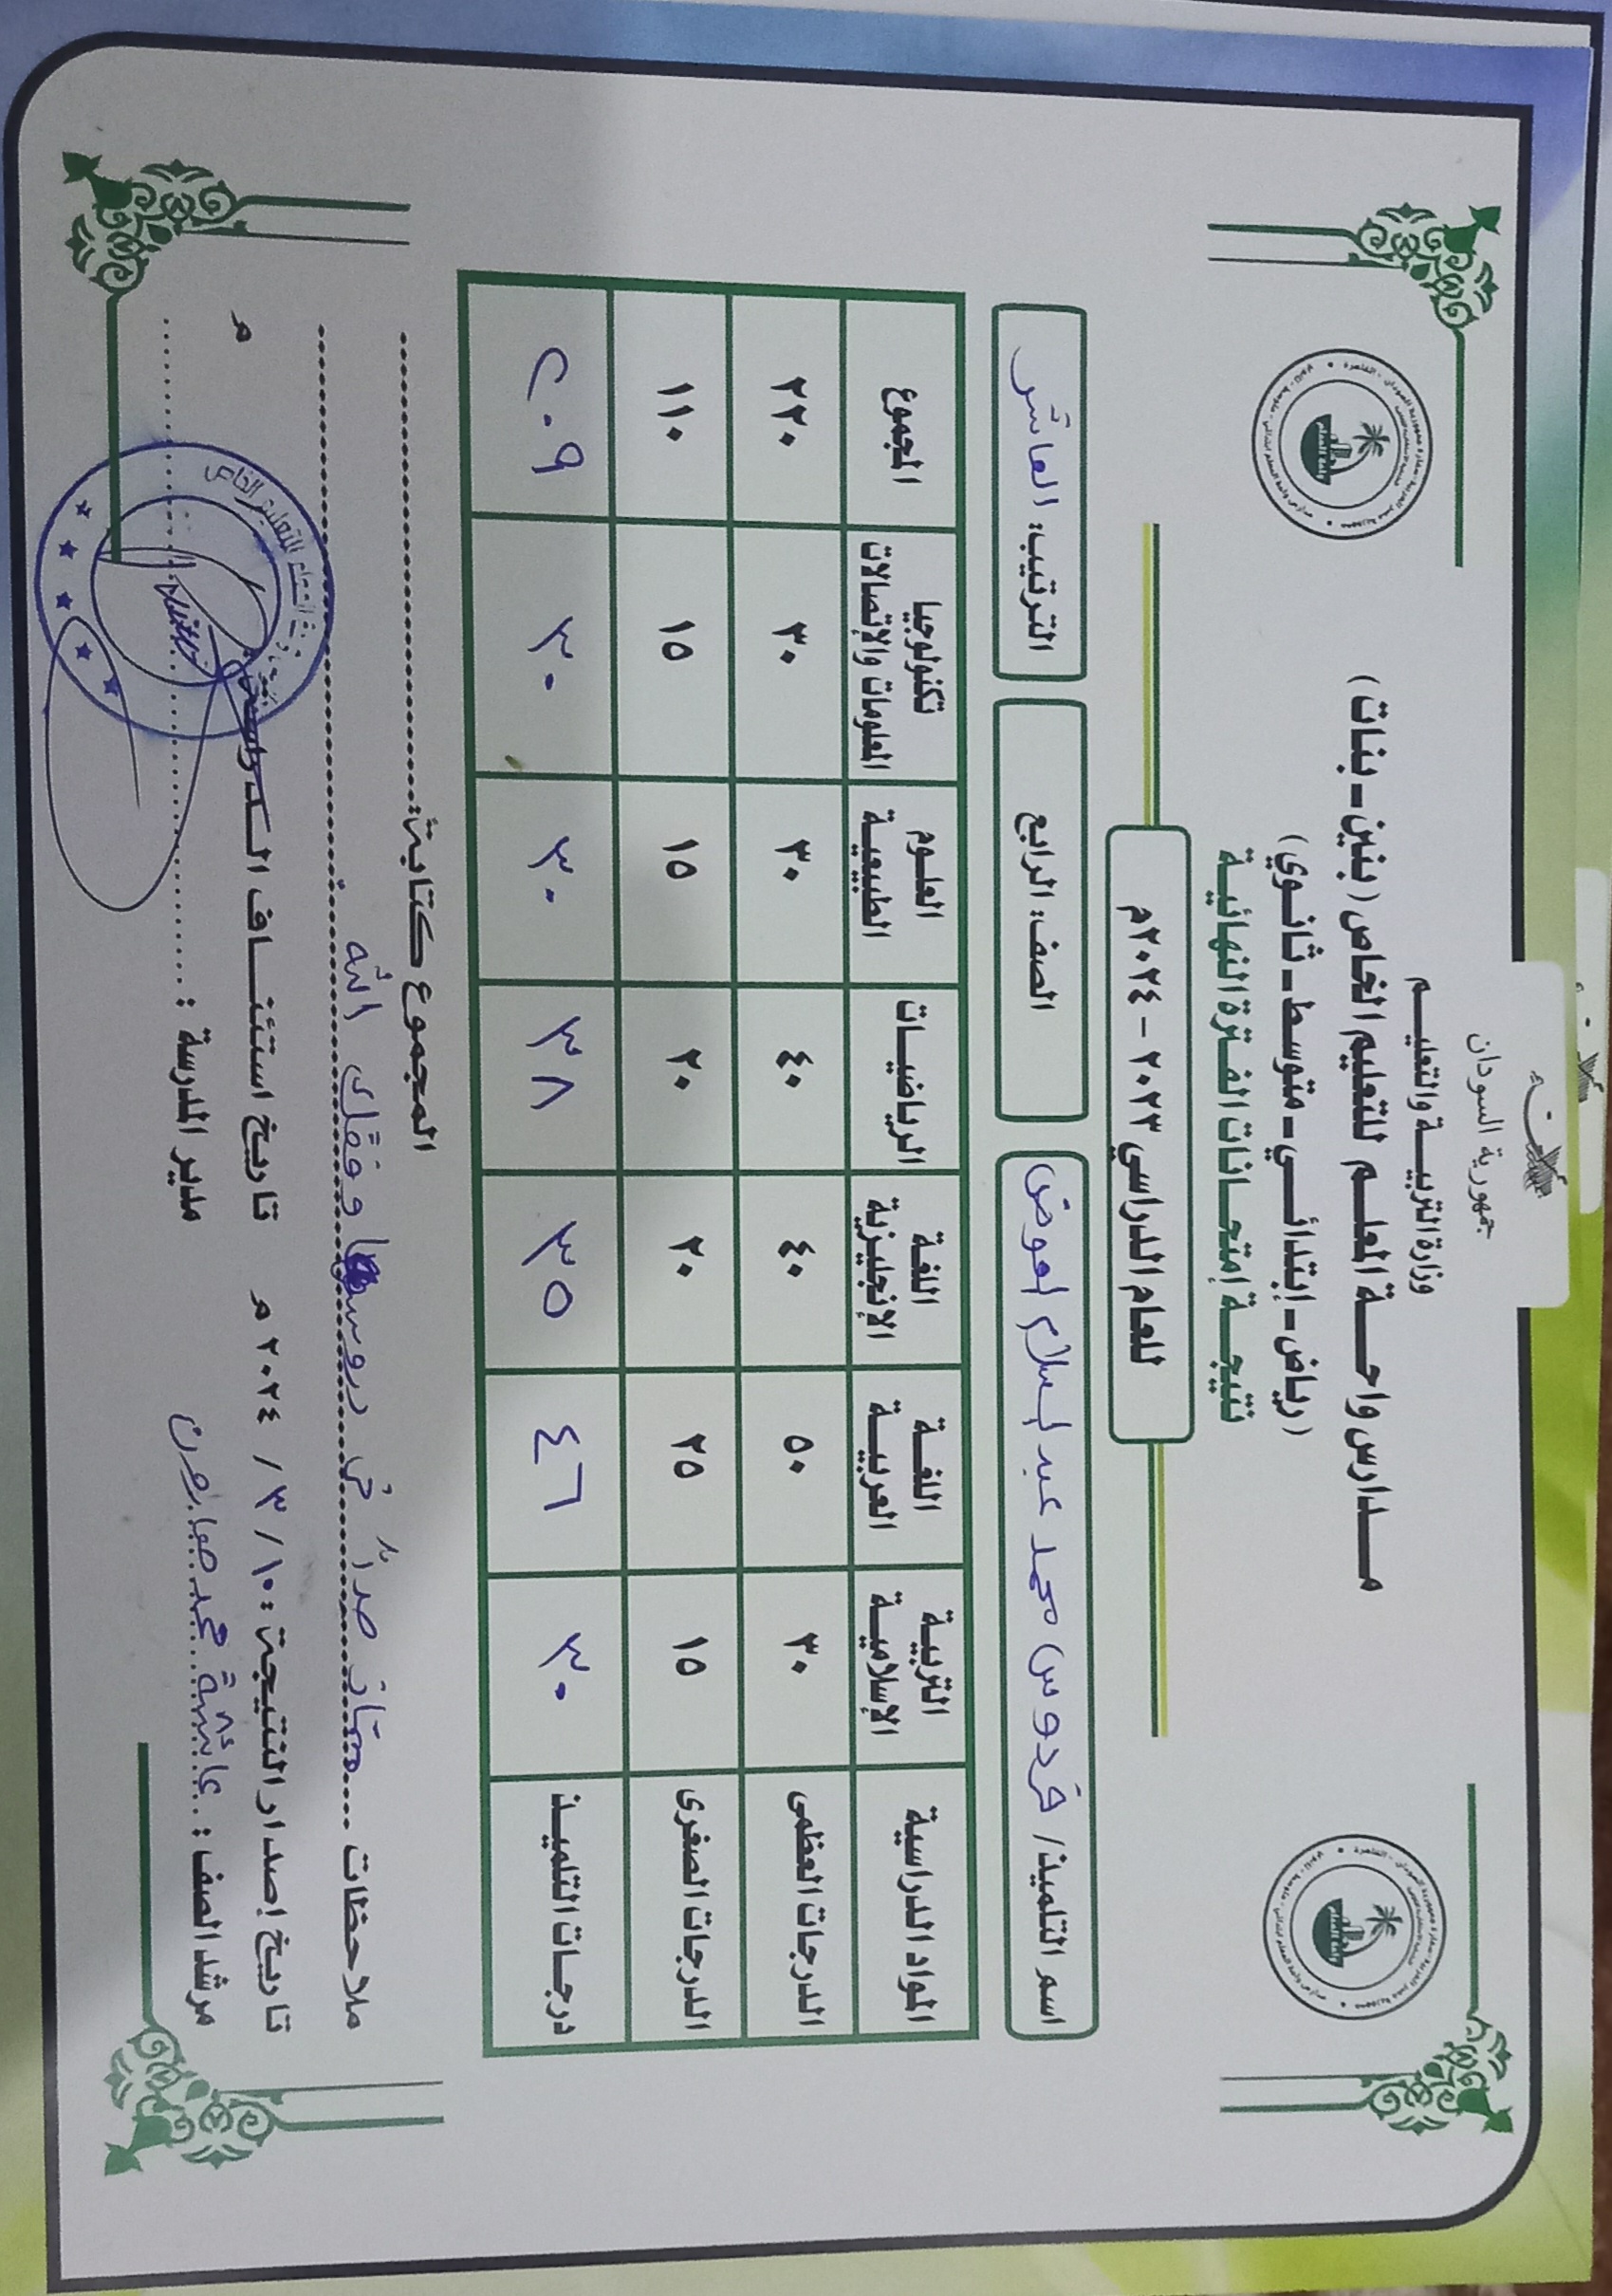 جمهورية السودان
وزارة التربيـــة والتعليـــم
مـــدارس واحـــة المعلـــم للتعليم الخاص (بنين - بنات)
(رياض - إبتدائـــي - متوسط - ثانـوي)
نتيجـة إمتحـانات الفـترة النهائيـة
للعام الدراسي ٢٠٢٣ - ٢٠٢٤م
اسم التلميذ/ فردوس محمد عبد السلام العوض
الصف: الرابع
الترتيب: العاشر
المواد الدراسية التربية الإسلاميـة اللغـة العربيـة اللغـة الإنجليزية الرياضيـات العلـوم الطبيعية تكنولوجيا المعلومات والإتصالات المجموع
الدرجات العظمى ٣٠ ٥٠ ٤٠ ٤٠ ٣٠ ٣٠ ٢٢٠
الدرجات الصغرى ١٥ ٢٥ ٢٠ ٢٠ ١٥ ١٥ ١١٠
درجـات التلميـذ ٣٠ ٤٦ ٣٥ ٣٨ ٣٠ ٣٠ ٢٠٩
المجموع كتابة:
ملاحظات ممتاز في وفقك الله
تاريخ إصدار النتيجة: ١٠ / ٣ / ٢٠٢٤م تاريخ استئنـــاف الـدراسـة م
مرشد الصف: عائشة محمد مدير المدرسة: